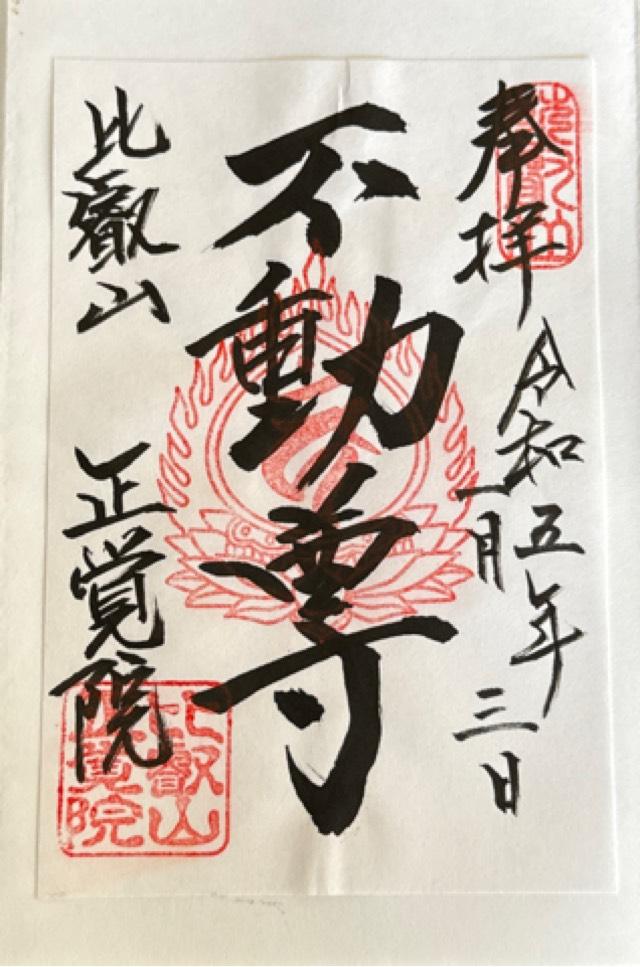 奉拝
令和五年
一月
三日
不動尊
比叡山 正覚院
比叡山
正覚院